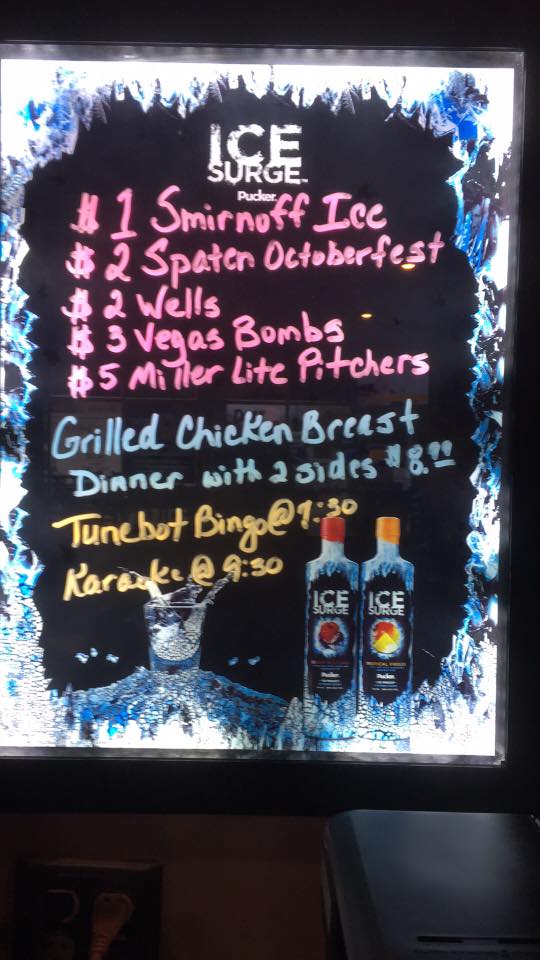 ICE
SURGE™
Pucker.
$1 Smirnoff Ice
$2 Spaten Octoberfest
$2 Wells
$3 Vegas Bombs
$5 Miller Lite Pitchers
Grilled Chicken Breast
Dinner with 2 sides $8.99
Tunebot Bingo@7:30
Karaoke @ 9:30
ICE
SURGE
Pucker
ICE
SURGE
Pucker